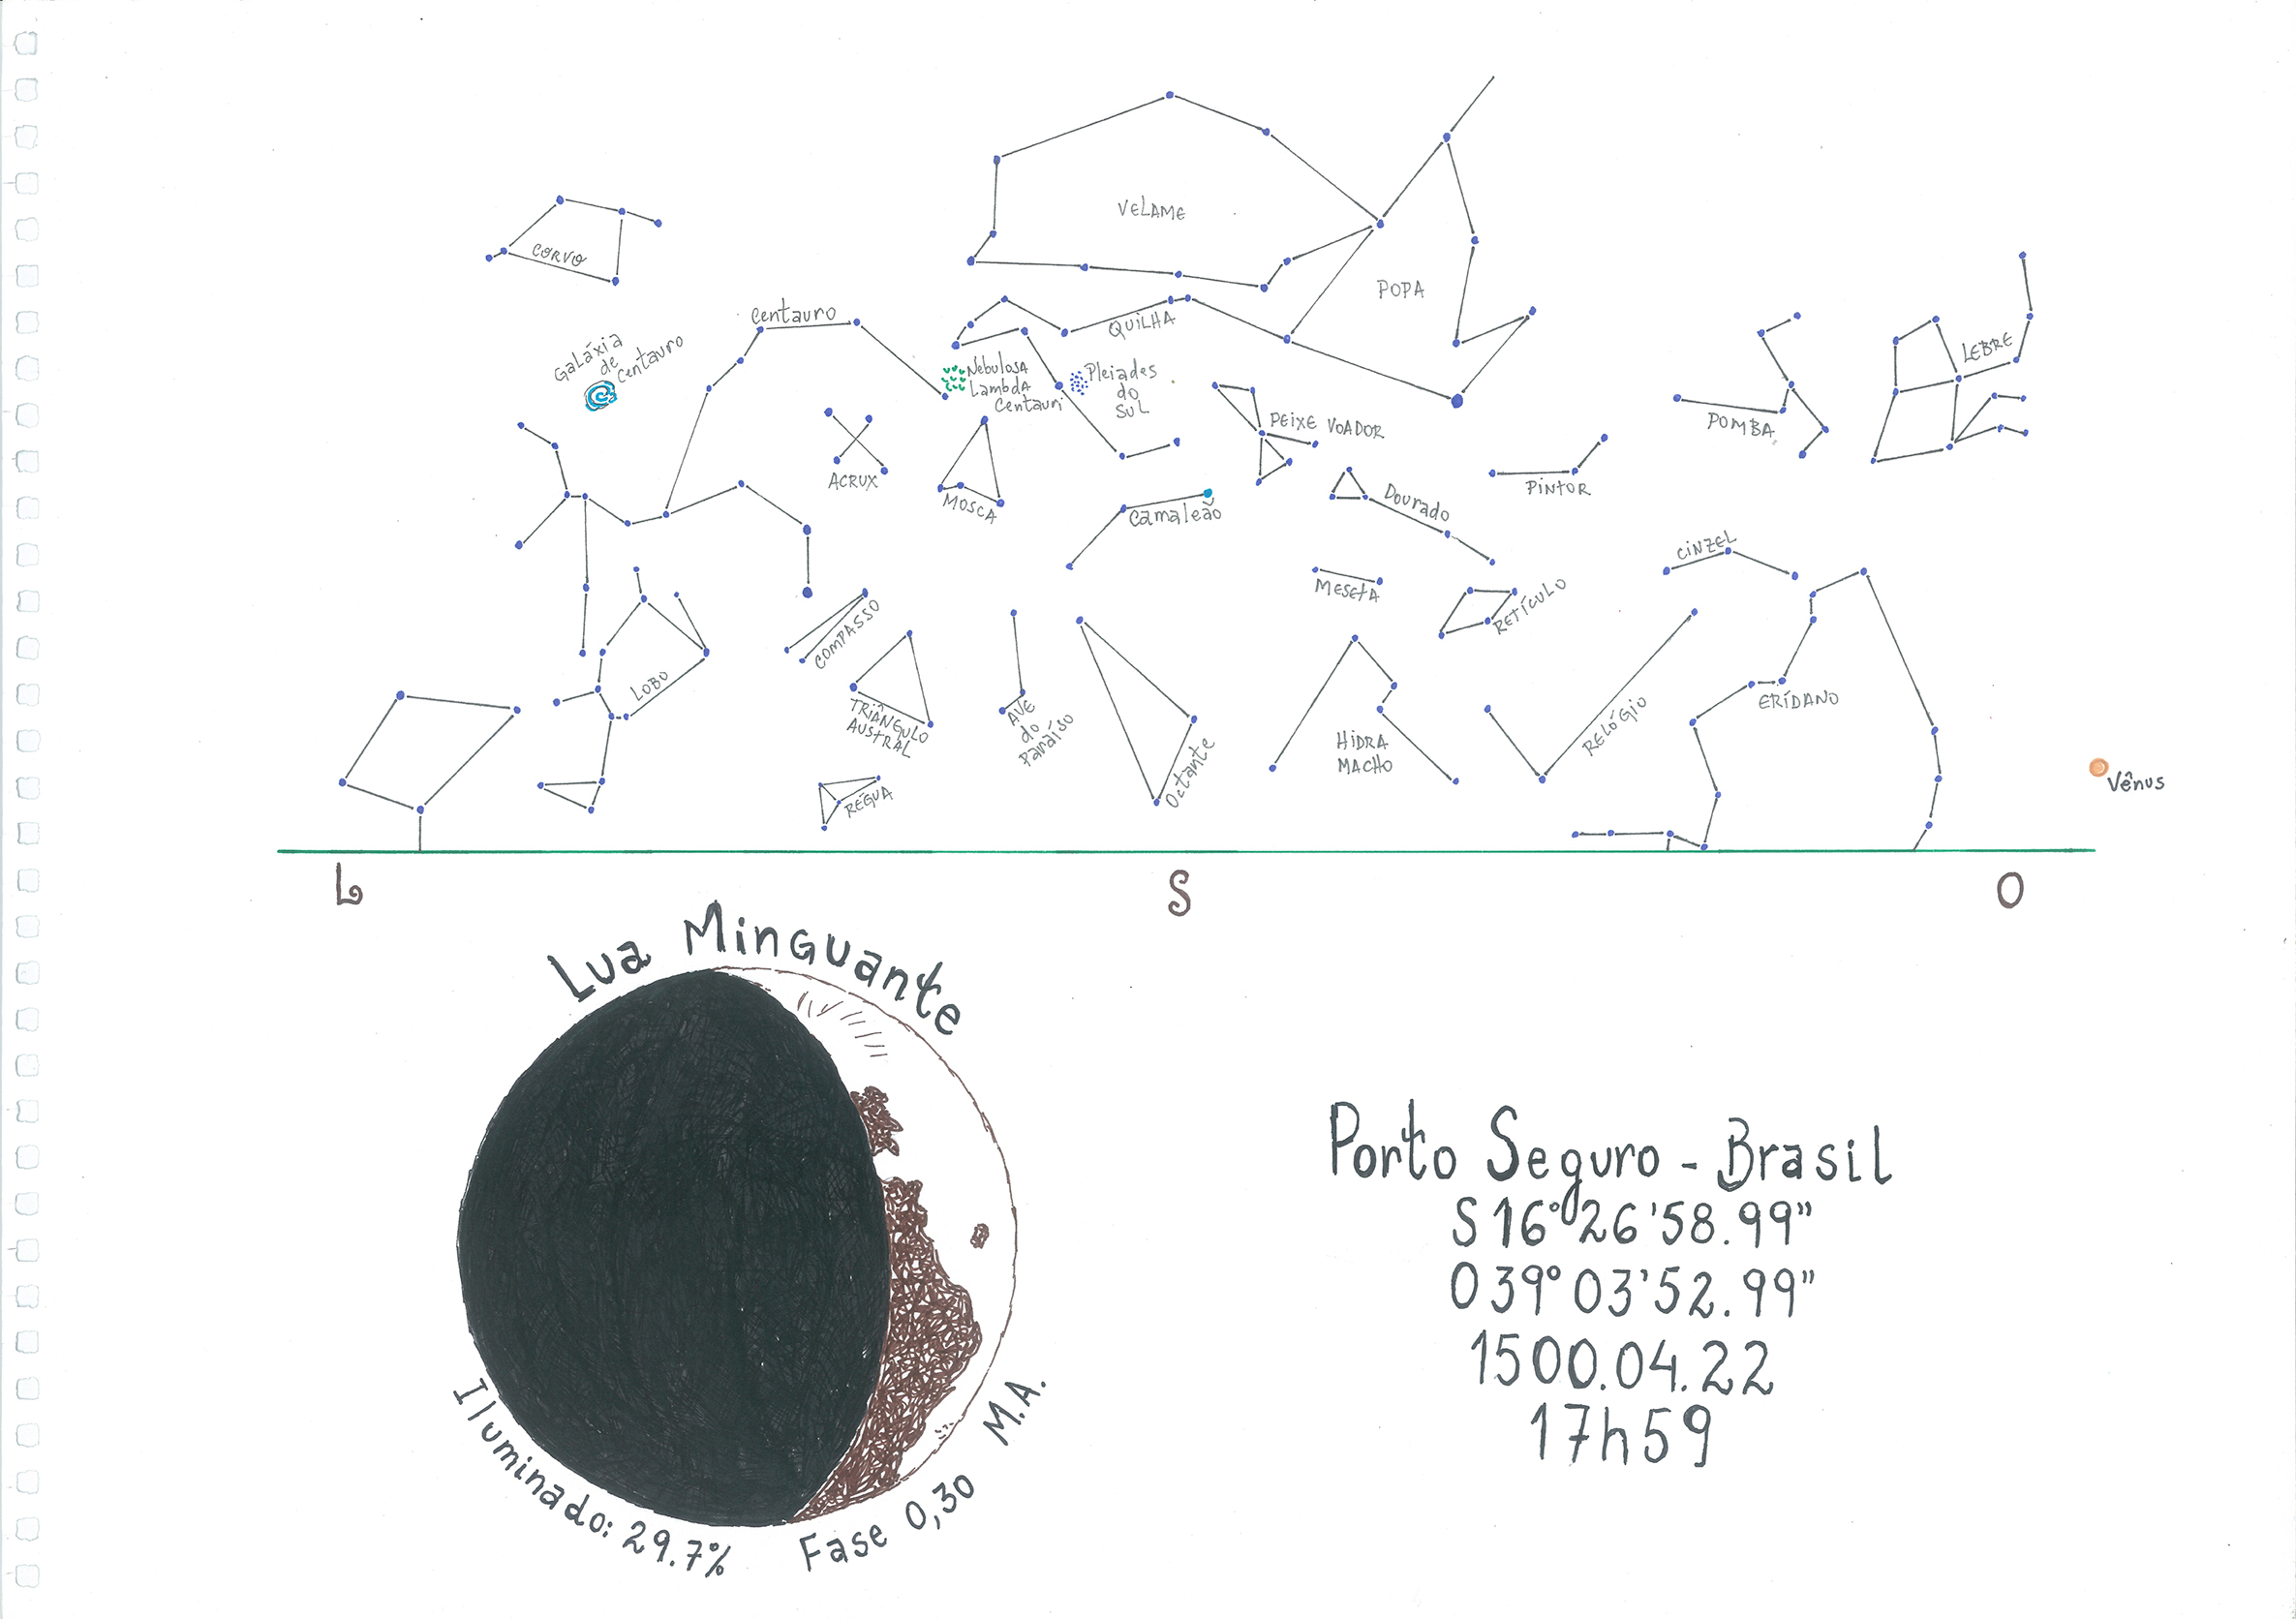 VELAME
CORVO
POPA
Centauro
QUILHA
LEBRE
Galáxia
de
Centauro
Nebulosa
Lambda
Centauri
Pleiades
do
SUL
PEIXE VOADOR
POMBA
ACRUX
MOSCA
PINTOR
Camaleão
Dourado
CINZEL
MESETA
RETÍCULO
COMPASSO
LOBO
TRIÂNGULO
AUSTRAL
AVE
do
Paraíso
Octante
HIDRA
MACHO
RELÓGIO
ERÍDANO
Vênus
RÉGUA
L S O
Lua Minguante
Iluminado: 29.7% Fase 0,30 M.A.
Porto Seguro - Brasil
S 16° 26'58.99"
O 39° 03'52.99"
1500.04.22
17h59